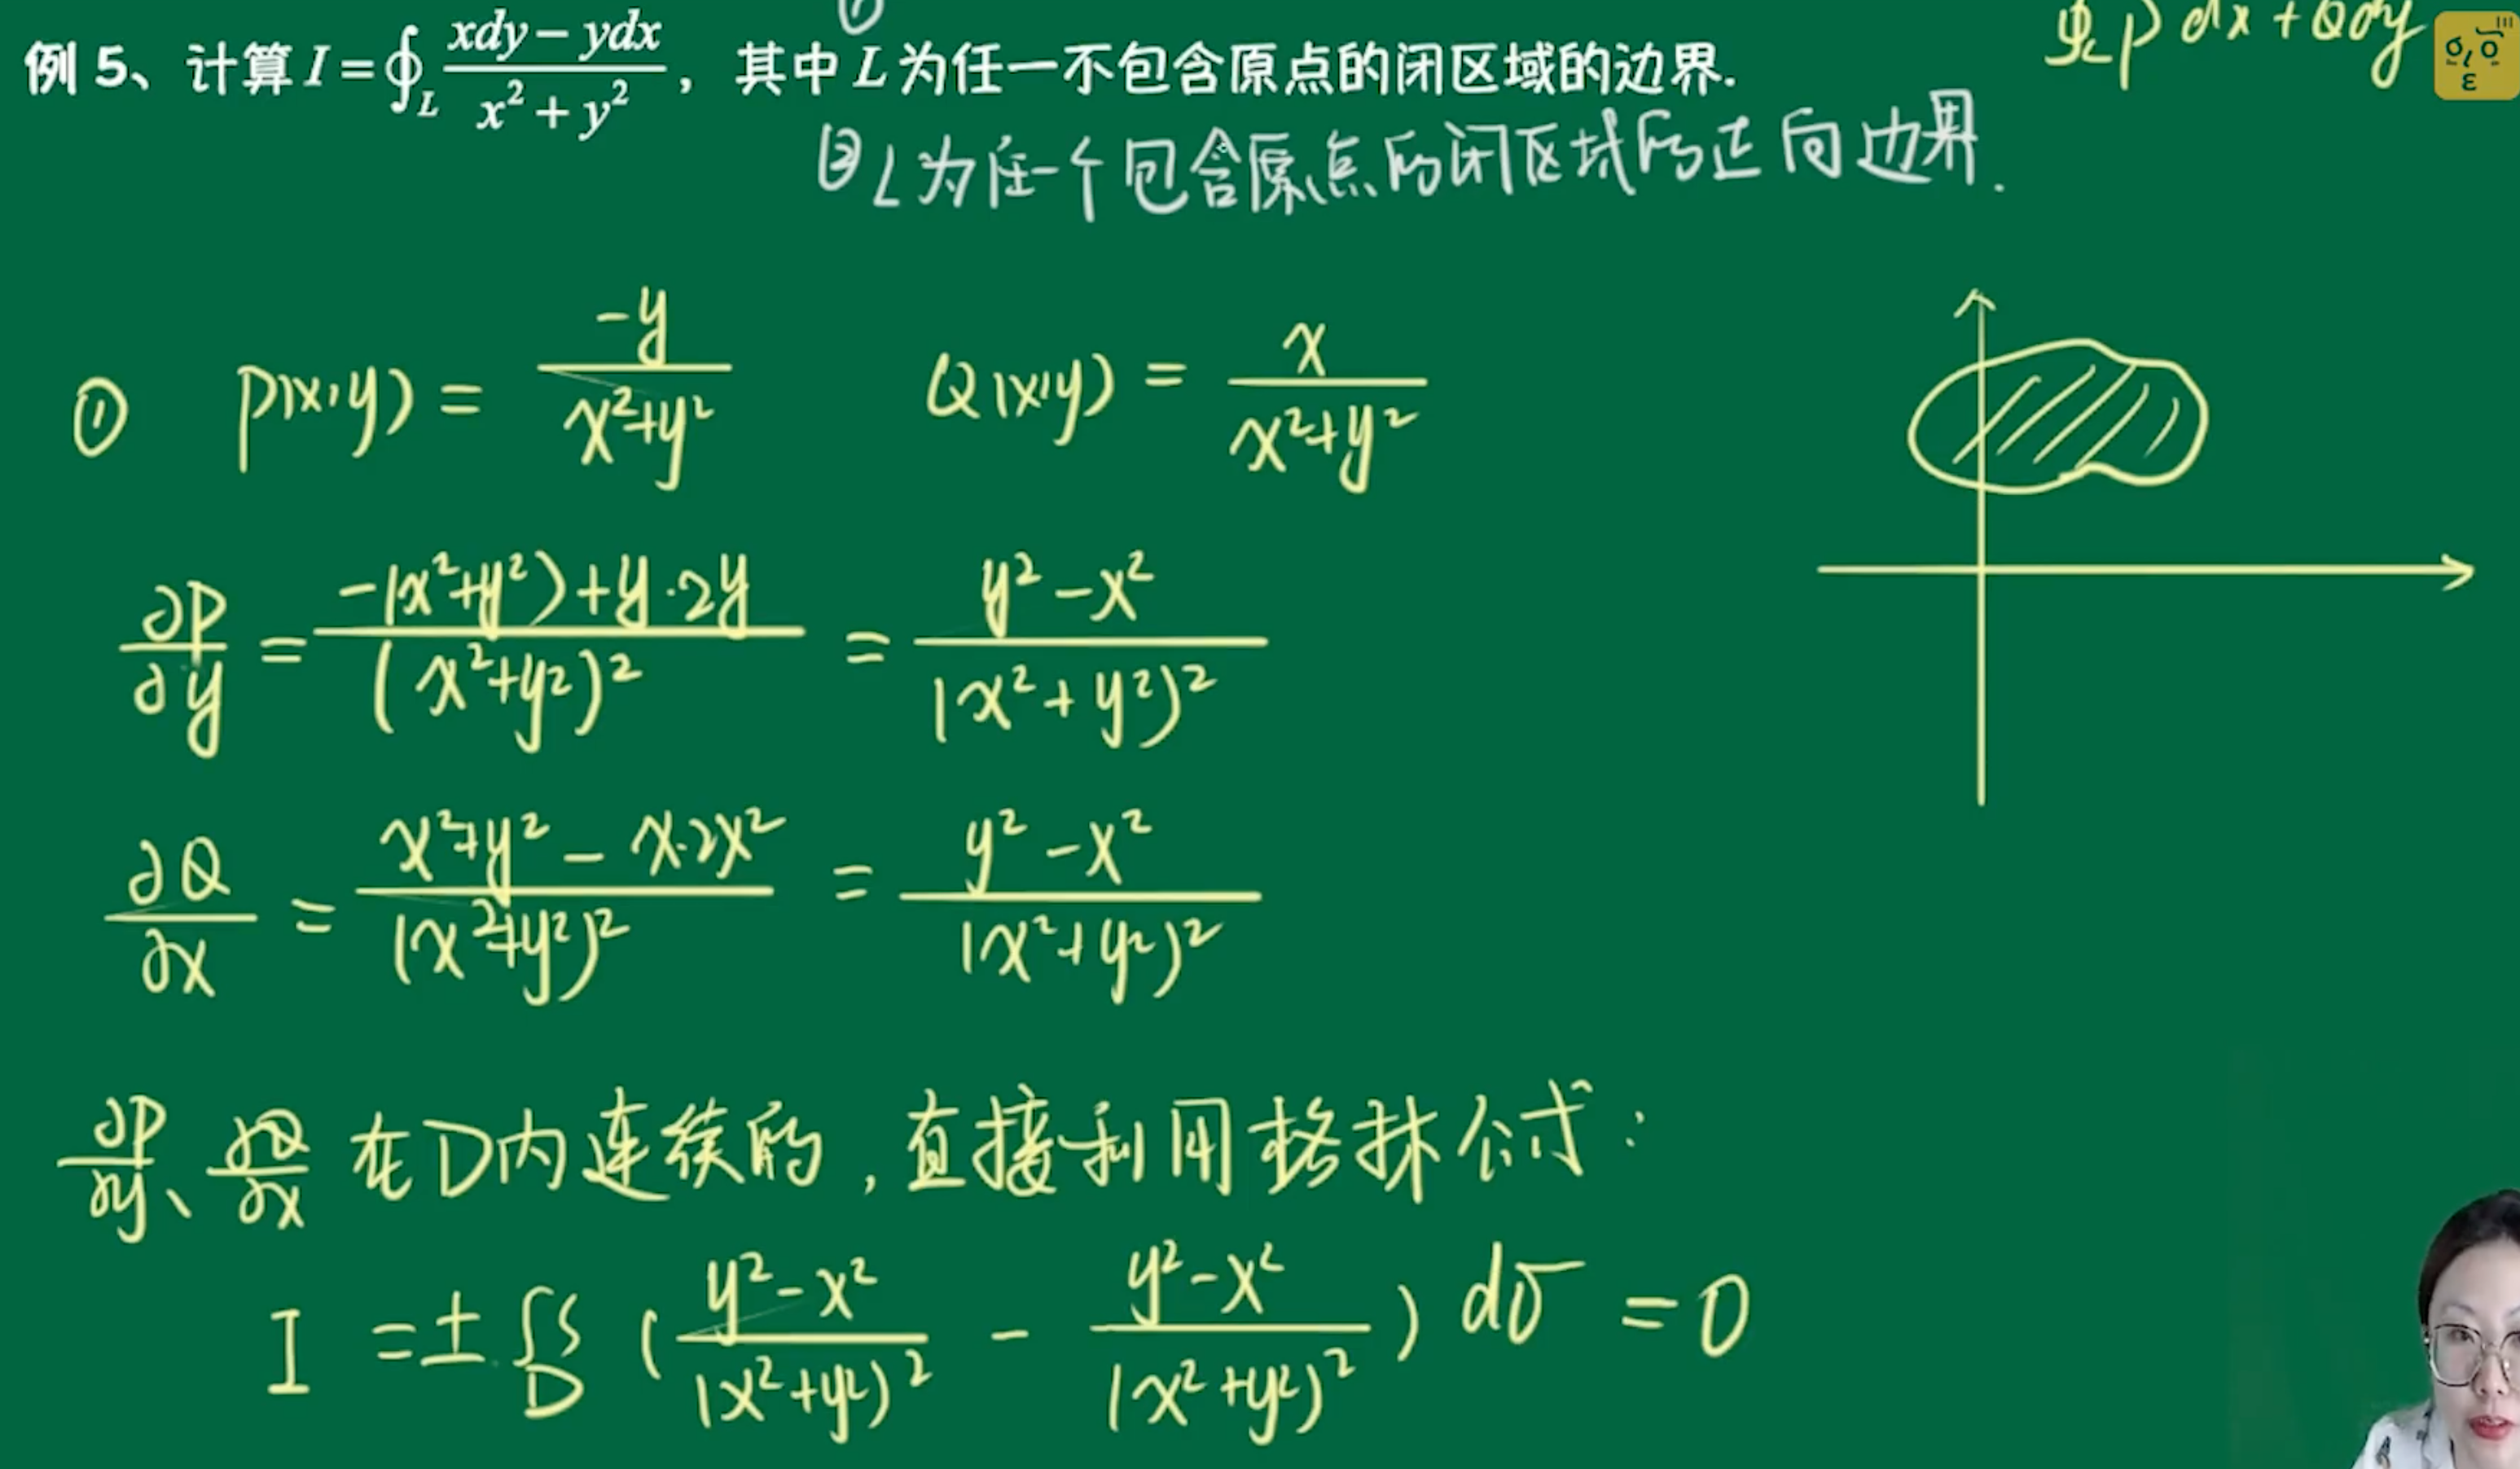 ①
∮_L P dx + Q dy
例 5、计算 I = ∮_L (xdy − ydx)/(x² + y²)，其中 L 为任一不包含原点的闭区域的边界.
② L为任一个包含原点的闭区域的正向边界.
① P(x,y) = -y/(x²+y²) Q(x,y) = x/(x²+y²)
∂P/∂y = (-(x²+y²)+y·2y)/(x²+y²)² = (y²-x²)/(x²+y²)²
∂Q/∂x = (x²+y²-x·2x²)/(x²+y²)² = (y²-x²)/(x²+y²)²
∂P/∂y、∂Q/∂x 在D内连续的，直接利用格林公式：
I = ± ∬_D ((y²-x²)/(x²+y²)² - (y²-x²)/(x²+y²)²) dσ = 0